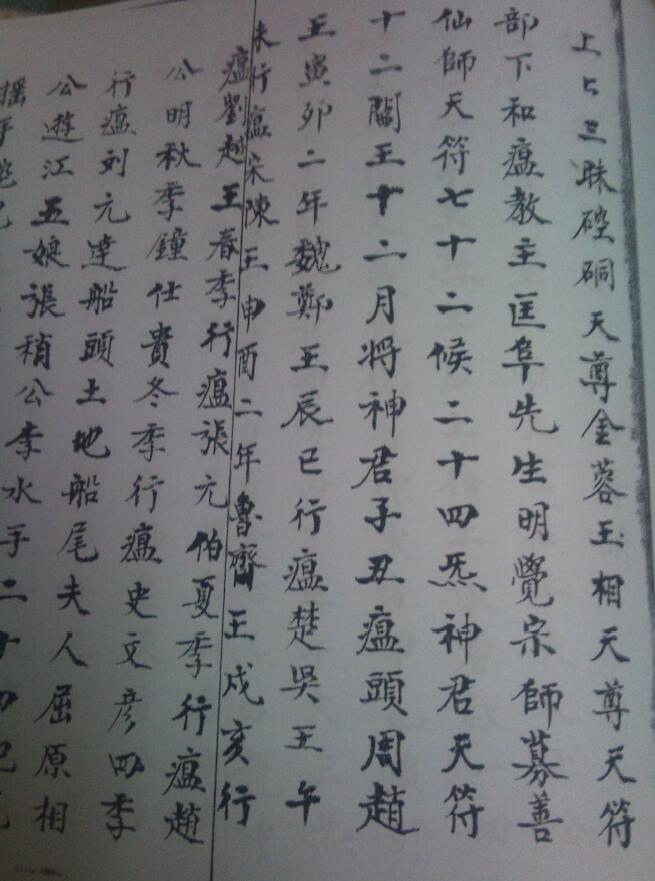 上上三眛硿硐天尊金蓉玉相天尊天符
部下和瘟教主匡阜先生明覺宗師募善
仙師天符七十二候二十四炁神君天符
十二閣王十二月将神君子丑瘟頭周趙
王寅卯二年魏鄭王辰巳行瘟楚吳王午
未行瘟宋陳王申酉二年魯齊王戍亥行
瘟劉越王春季行瘟張元伯夏季行瘟趙
公明秋季鐘仕貴冬季行瘟史文彦四季
行瘟刘元達船頭土地船尾夫人屈原相
公遊江五娘張稍公李水手二十四
摇手